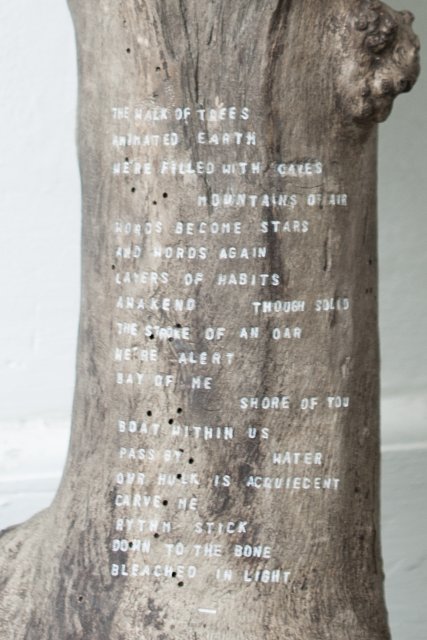 THE WALK OF TREES
ANIMATED EARTH
WE'RE FILLED WITH CAVES
MOUNTAINS OF AIR
WORDS BECOME STARS
AND WORDS AGAIN
LAYERS OF HABITS
AWAKEND THOUGH SOLID
THE STROKE OF AN OAR
WE'RE ALERT
BAY OF ME
SHORE OF YOU
BOAT WITHIN US
PASS BY WATER
OUR HULK IS ACQUIECENT
CARVE ME
RYTHM STICK
DOWN TO THE BONE
BLEACHED IN LIGHT